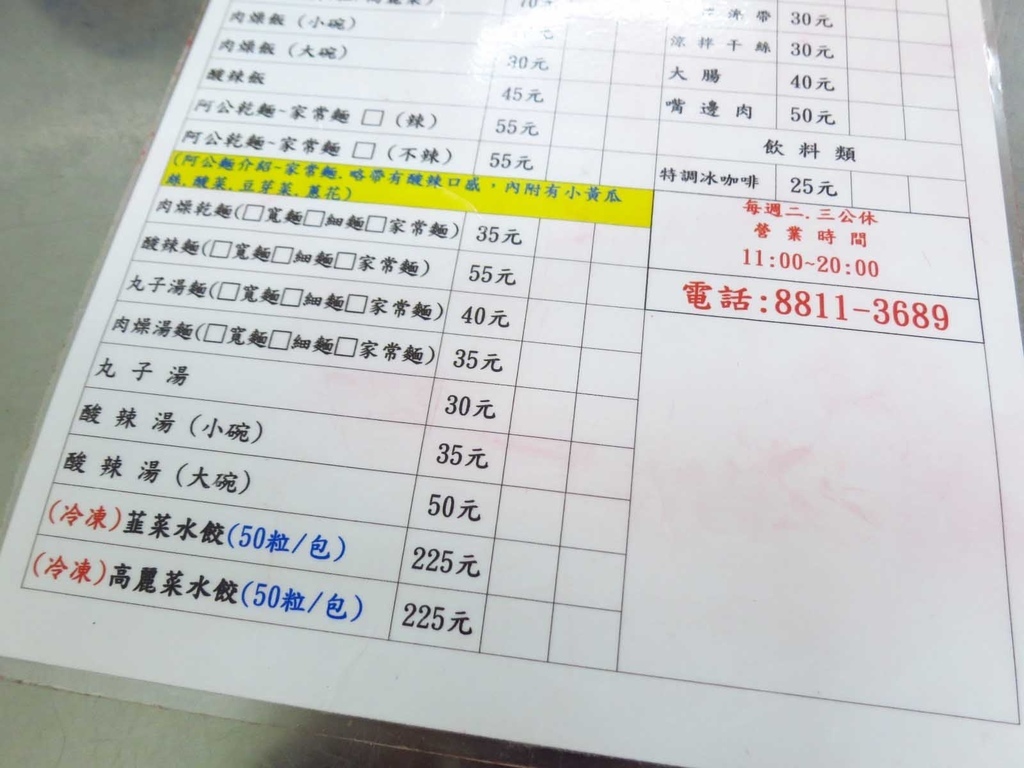 肉燥飯(小碗)
肉燥飯(大碗) 30元
酸辣飯 45元
阿公乾麵~家常麵 □ (辣) 55元
阿公乾麵~家常麵 □ (不辣) 55元
(阿公麵介紹~家常麵.略帶有酸辣口感，內附有小黃瓜
絲.酸菜.豆芽菜.蔥花)
肉燥乾麵(□寬麵□細麵□家常麵) 35元
酸辣麵(□寬麵□細麵□家常麵) 55元
丸子湯麵(□寬麵□細麵□家常麵) 40元
肉燥湯麵(□寬麵□細麵□家常麵) 35元
丸子湯 30元
酸辣湯(小碗) 35元
酸辣湯(大碗) 50元
(冷凍)韮菜水餃(50粒/包) 225元
(冷凍)高麗菜水餃(50粒/包) 225元
帶 30元
涼拌干絲 30元
大腸 40元
嘴邊肉 50元
飲料類
特調冰咖啡 25元
每週二.三公休
營業時間
11:00~20:00
電話:8811-3689